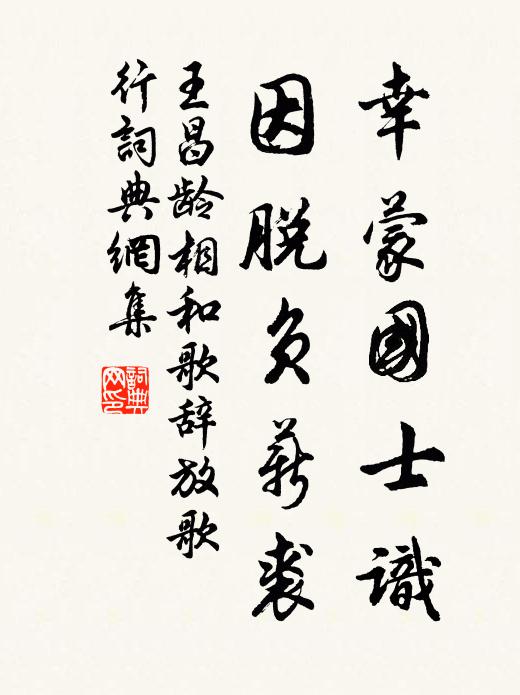 幸蒙國士識
因脱負薪裘
王昌龄相和歌辞放歌
行詞典網集
詞典網印